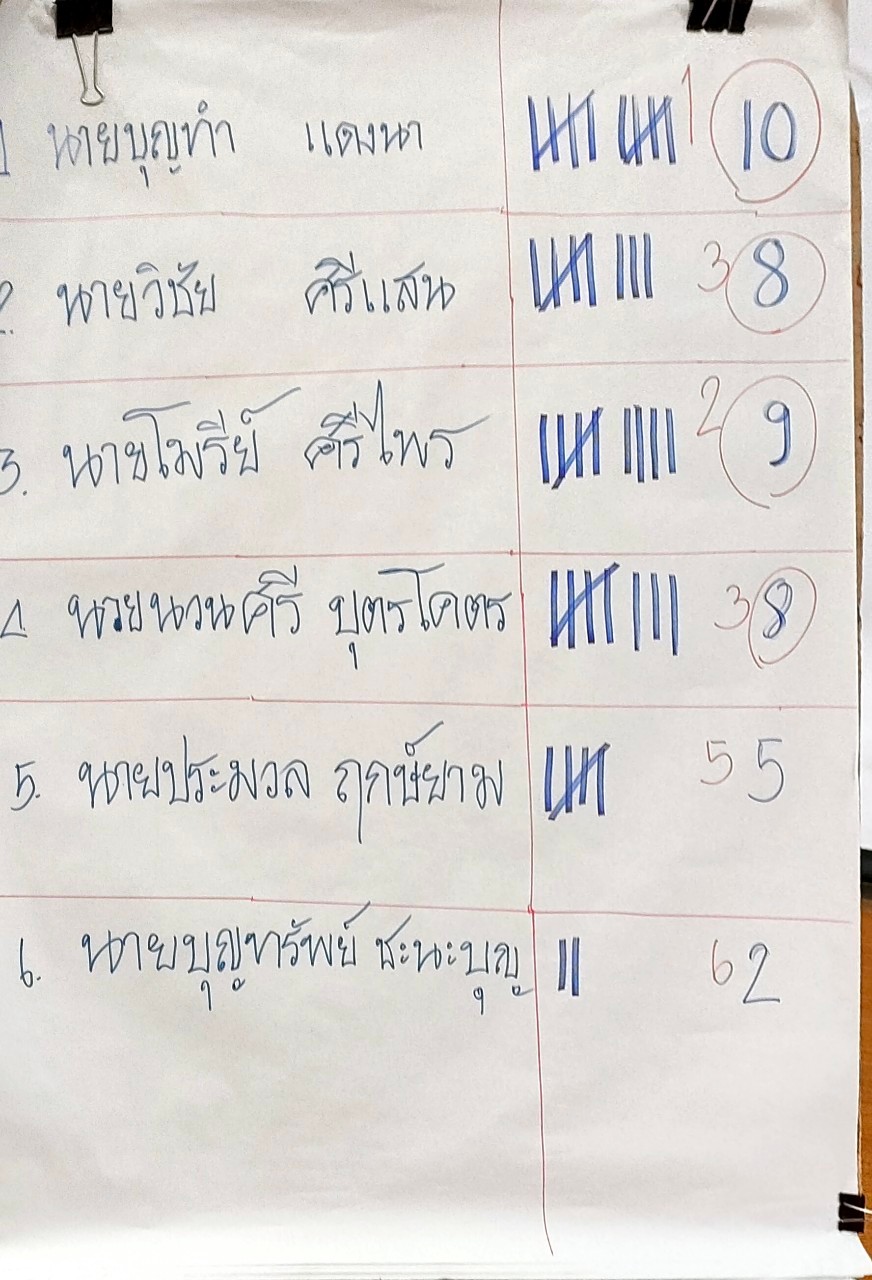 1 นายบุญทำ แดงนา 1 10
2. นายวิชัย ศรีแสน 3 8
3. นายโมรีย์ ศรีไพร 2 9
4. นายนวนศรี บุตรโคตร 3 8
5. นายประมวล ฤกษ์ยาม 5 5
6. นายบุญทรัพย์ ชะนะบุญ 6 2